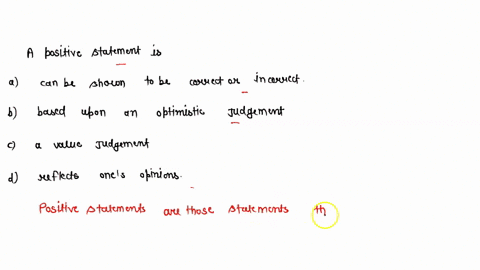 A positive statement is
a) can be shown to be correct or incorrect.
b) based upon an optimistic judgement
c) a value judgement
d) reflects one's opinions.
Positive statements are those statements th